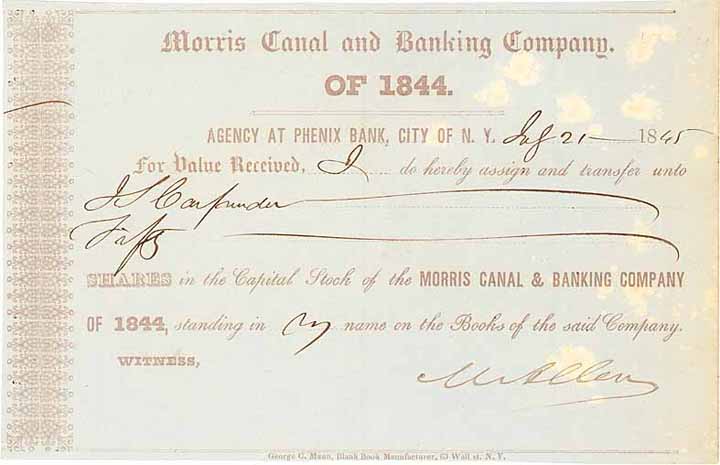 Morris Canal and Banking Company.
OF 1844.
AGENCY AT PHENIX BANK, CITY OF N. Y. July 21 1845
For Value Received, I do hereby assign and transfer unto
J S Carpender
Fifty
SHARES in the Capital Stock of the MORRIS CANAL & BANKING COMPANY
OF 1844, standing in my name on the Books of the said Company.
WITNESS,
M Allen
George C. Mann, Blank Book Manufacturer, 63 Wall st. N. Y.